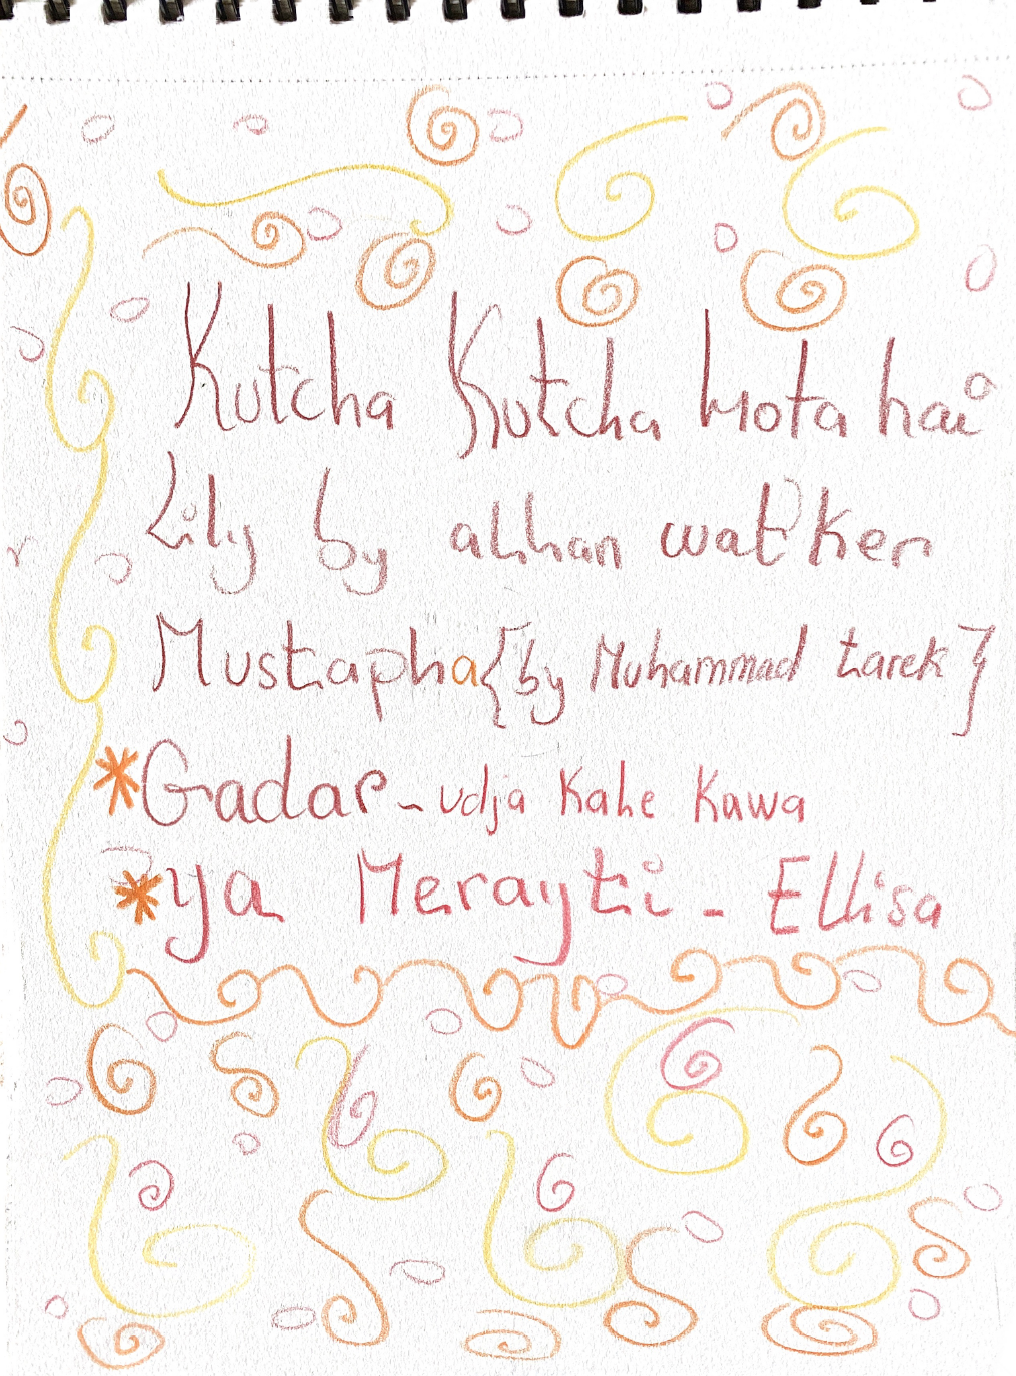 Kutcha Kutcha hota hai
Lily by alhan watker
Mustapha {by Muhammad tarek}
*Gadar - udja Kahe Kawa
*ya Merayti - Ellisa